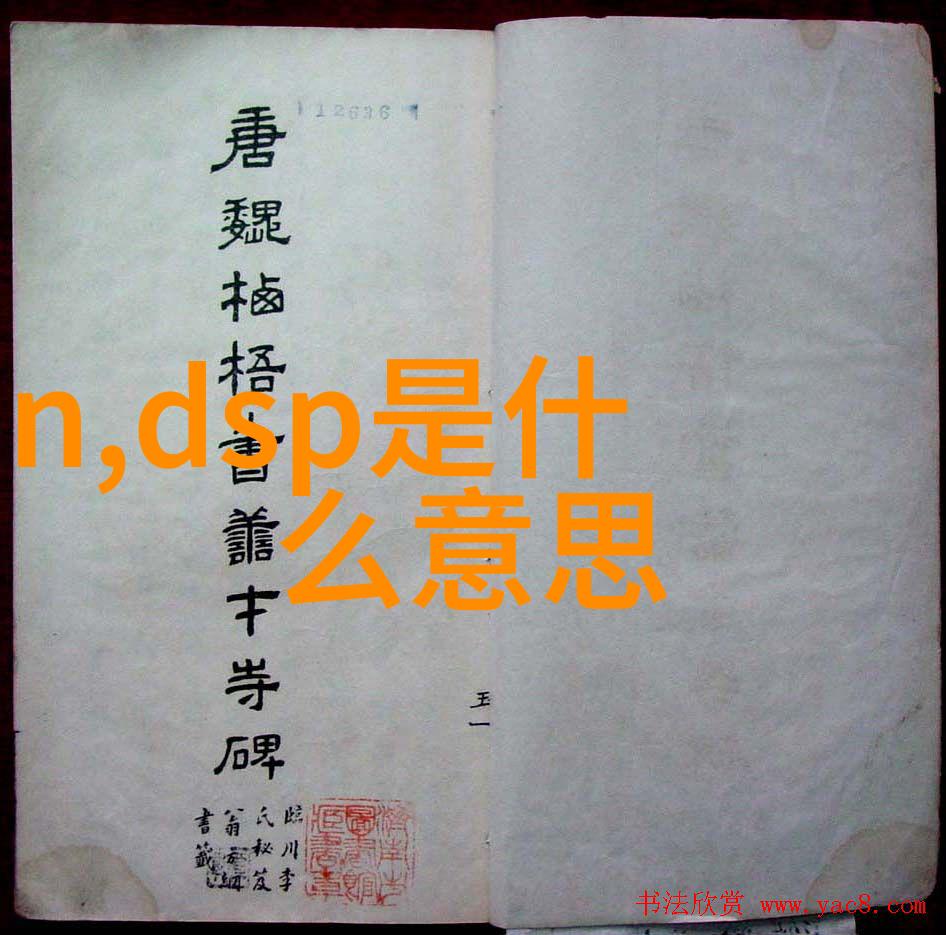 12636
唐魏栖梧書善才寺碑
臨川李
氏秘笈
翁方綱
書籤
n,dsp是什
么意思
五一
书法欣赏 www.yac8.com